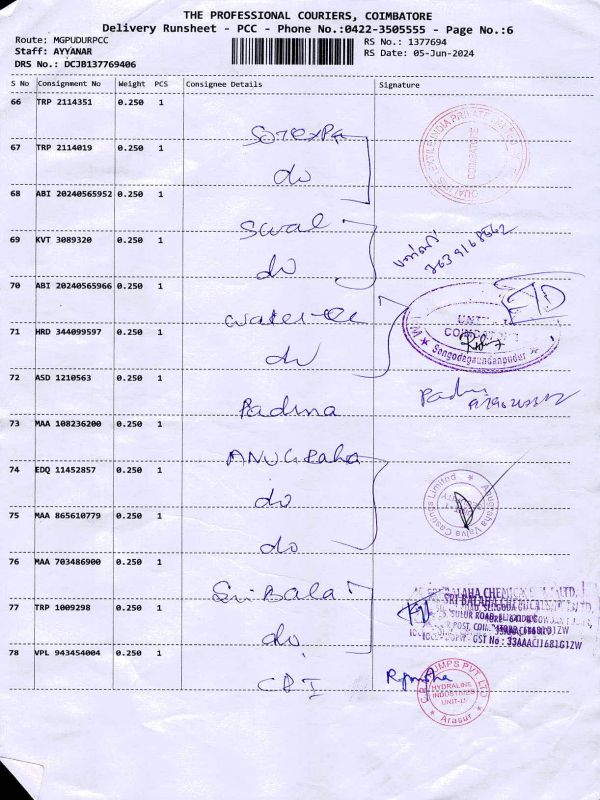 THE PROFESSIONAL COURIERS, COIMBATORE
Delivery Runsheet - PCC - Phone No.:0422-3505555 - Page No.:6
Route: MGPUDURPCC
Staff: AYYANAR
DRS No.: DCJB137769406
RS No.: 1377694
RS Date: 05-Jun-2024
S No Consignment No Weight PCS Consignee Details Signature
66 TRP 2114351 0.250 1
67 TRP 2114019 0.250 1
do
68 ABI 20240565952 0.250 1
69 KVT 3089320 0.250 1
do
70 ABI 20240565966 0.250 1
71 HRD 344099597 0.250 1
do
COIMBATORE
Sengodagoundanpudur
72 ASD 1210563 0.250 1
Padma
73 MAA 108236200 0.250 1
ANUGRaha
74 EDQ 11452857 0.250 1
do
Anugraha Valve Castings Limited
75 MAA 865610779 0.250 1
do
76 MAA 703486900 0.250 1
Sri Bala
SRI BALAHA CHEMICALS
77 TRP 1009298 0.250 1
do
GST No : 33AAACI1681G1ZW
78 VPL 943454004 0.250 1
CBI
PUMPS PVT. LTD
HYDRALINE
INDUSTRIES
UNIT-II
Arasur